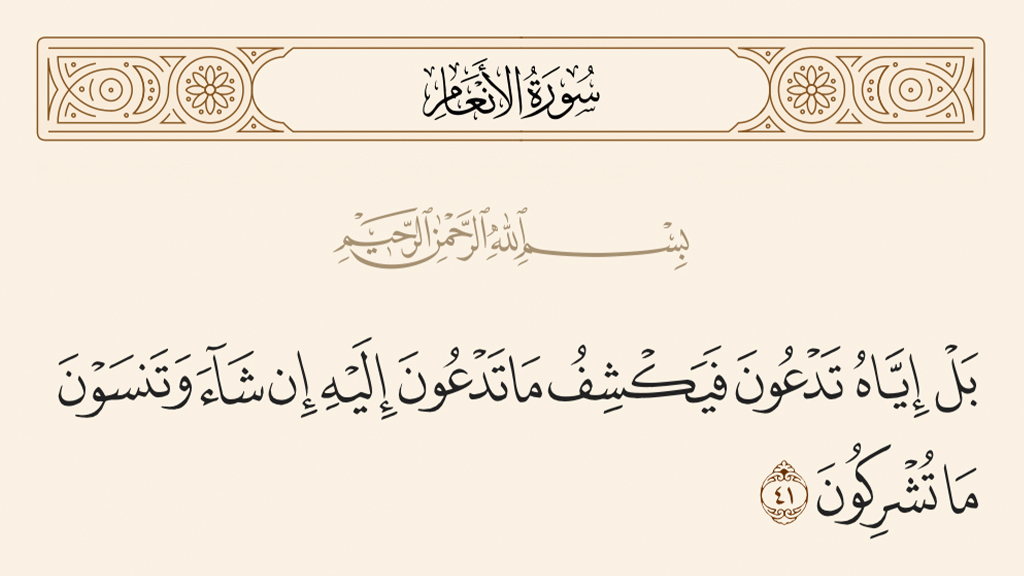 سُورَةُ الأَنْعَامِ
بِسْمِ ٱللَّهِ ٱلرَّحْمَٰنِ ٱلرَّحِيمِ
بَلْ إِيَّاهُ تَدْعُونَ فَيَكْشِفُ مَا تَدْعُونَ إِلَيْهِ إِن شَآءَ وَتَنسَوْنَ
مَا تُشْرِكُونَ ٤١